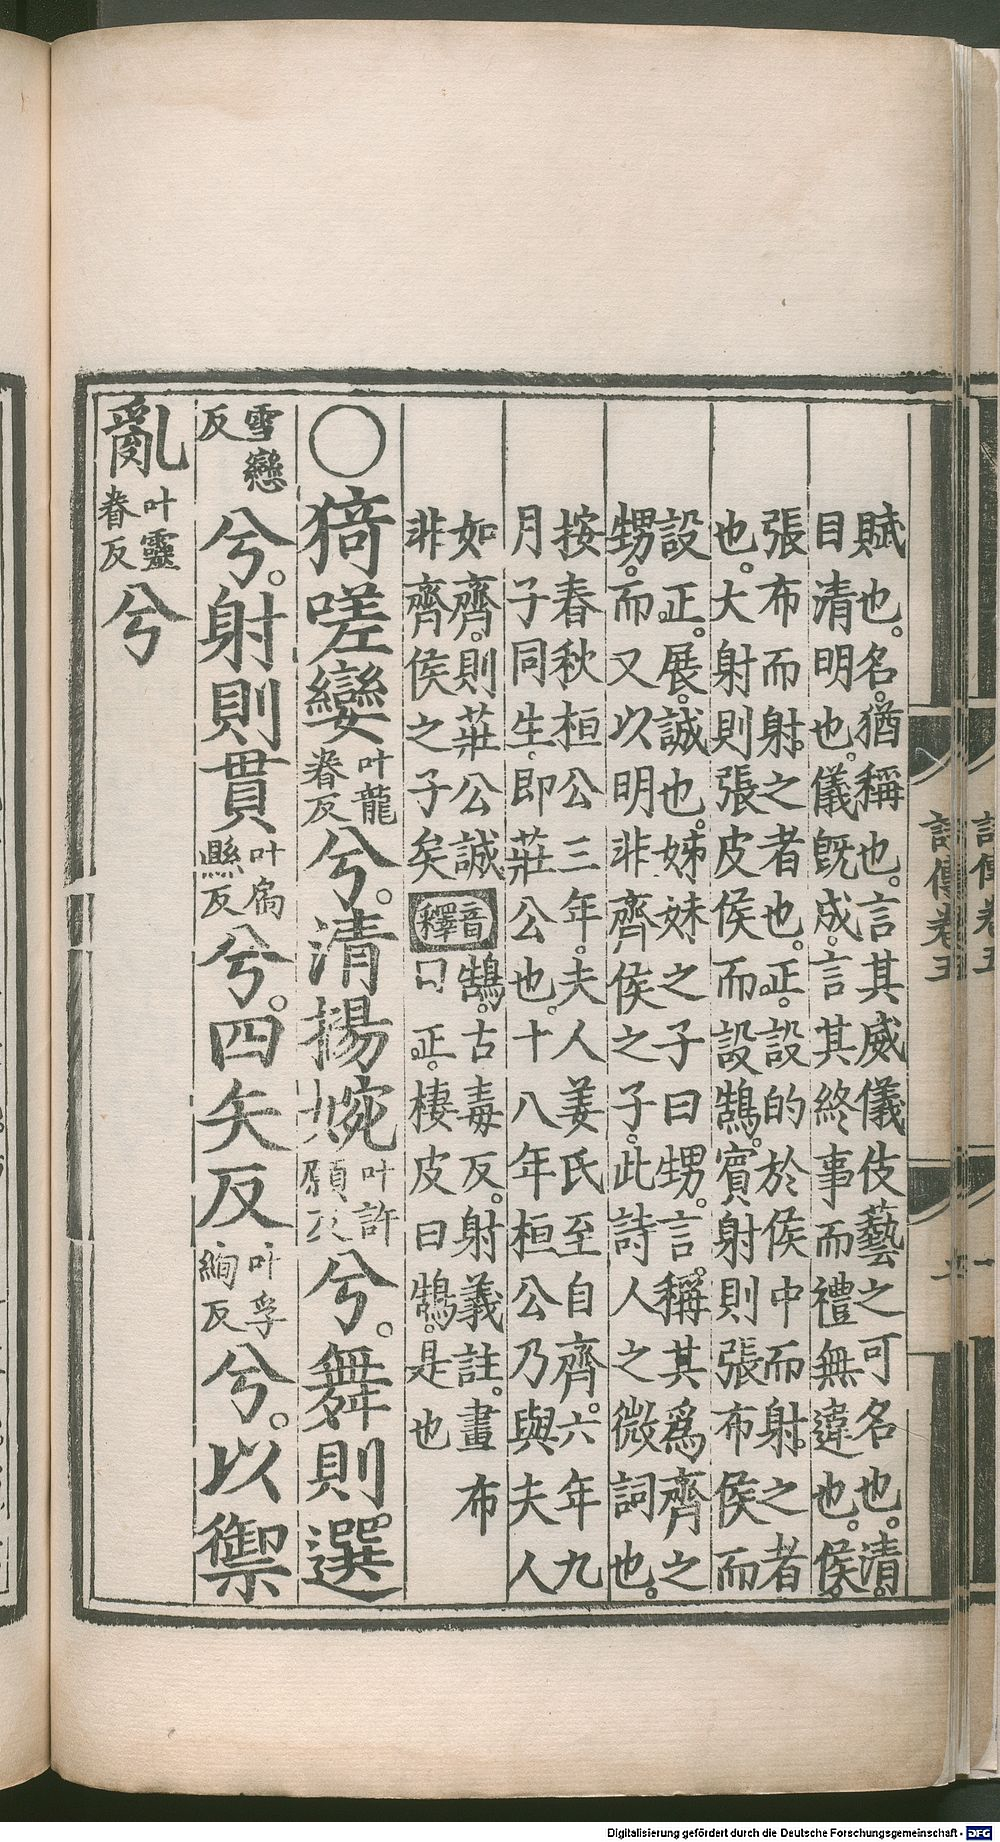 賦也。名。猶稱也。言其威儀伎藝之可名也。清。
目清明也。儀既成。言其終事而禮無違也。侯。
張布而射之者也。正。設的於侯中而射之者
也。大射則張皮侯而設鵠。賓射則張布侯而
設正。展。誠也。姊妹之子曰甥。言稱其爲齊之
甥。而又以明非齊侯之子。此詩人之微詞也。
按春秋桓公三年。夫人姜氏至自齊。六年九
月子同生。即莊公也。十八年桓公乃與夫人
如齊。則莊公誠
非齊侯之子矣
音釋
鵠。古毒反。射義註。畫布
曰正。棲皮曰鵠。是也
○猗嗟孌叶龍眷反兮。清揚婉叶許願反兮。舞則選
雪戀反兮。射則貫叶扃縣反兮。四矢反叶孚絢反兮。以禦
亂叶靈眷反兮
詩傳卷五